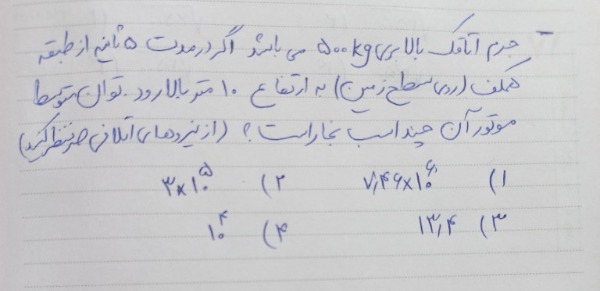 - جرم اتاقک بالابری ۵۰۰kg می باشد اگر در مدت ۵ ثانیه از طبقه
همکف (روی سطح زمین) به ارتفاع ۱۰ متر بالا رود. توان متوسط
موتور آن چند اسب بخار است؟ (از نیروهای اتلافی صرفنظر کنید)
۱) ۷,۴۶×۱۰^۶ ۲) ۳×۱۰^۵
۳) ۱۳,۴ ۴) ۱۰^۴